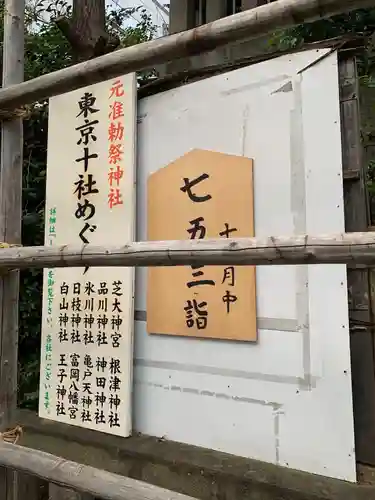 元准勅祭神社
東京十社めぐり
芝大神宮 根津神社
品川神社 神田神社
氷川神社 亀戸天神社
日枝神社 富岡八幡宮
白山神社 王子神社
詳細は「し を御覧下さい。各社にございます。
十一月中
七五三詣